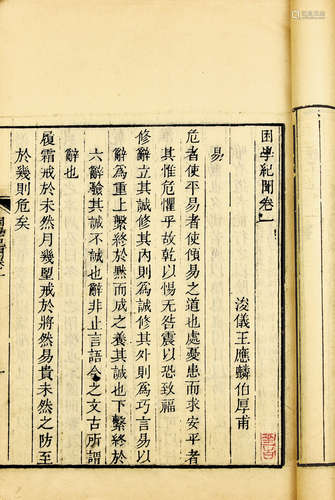 困學紀聞卷一
浚儀王應麟伯厚甫
易
危者使平易者使傾易之道也處憂患而求安平者
其惟危懼乎故乾以惕无咎震以恐致福
修辭立其誠修其內則爲誠修其外則爲巧言易以
辭爲重上繫終於默而成之養其誠也下繫終於
六辭驗其誠不誠也辭非止言語今之文古所謂
辭也
履霜戒於未然月幾望戒於將然易貴未然之防至
於幾則危矣